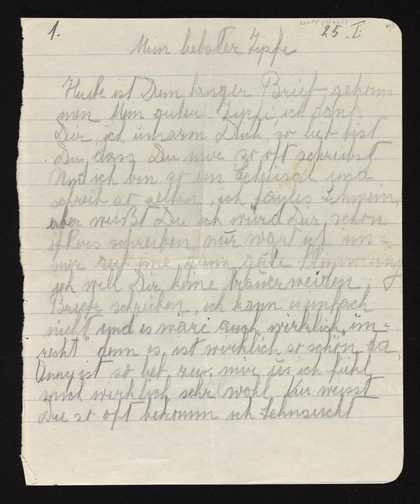 1.
25. I.
Mein liebster Zipfe
Heute ist Dein langer Brief gekom-
men. Mein guter Zipfe, ich dank
Dir, ich umarm Dich, so lieb bist
Du, dass Du mir so oft schreibst
Und ich bin so ein Scheusal und
schreib so selten, ich
aber weißt Du ich würd Dir schon
öfters schreiben, nur wart ich im-
mer auf eine ganz gute Stimmung
ich will Dir keine trauerweiden
Briefe schreiben, ich kann es einfach
nicht und es wäre auch wirklich "un-
recht" denn es ist wirklich so schön da,
Anny ist so lieb zu mir ich fühl
mich wirklich sehr wohl. Nur weisst
Du so oft bekomm ich Sehnsucht